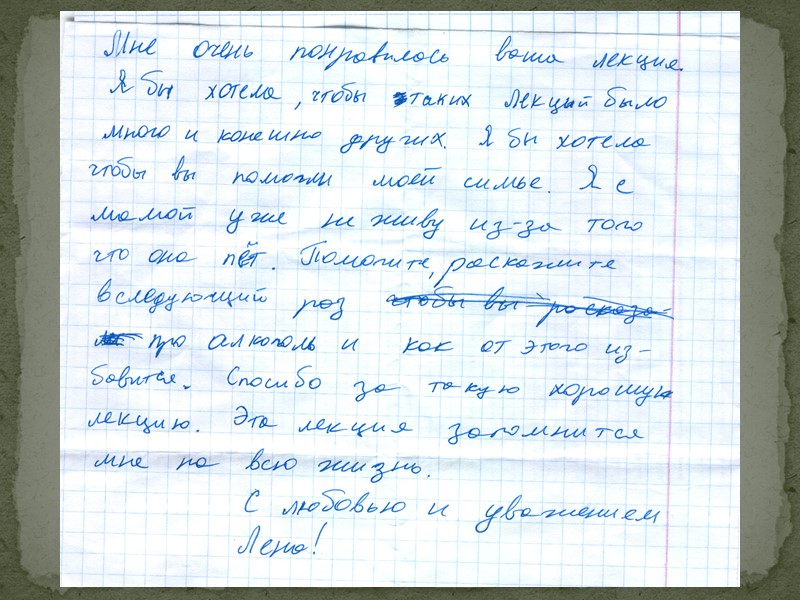 Мне очень понравилось ваша лекция.
Я бы хотела, чтобы таких лекцый было
много и конешно других. Я бы хотела
чтобы вы помогли моей симье. Я с
мамой уже не живу из-за того
что она пёт. Помогите, раскажите
вследующий раз чтобы вы расказа-
ли про алкоголь и как от этого из-
бавится. Спасибо за такую хорошую
лекцию. Эта лекция запомнится
мне на всю жизнь.
С любовью и уважением
Лена!